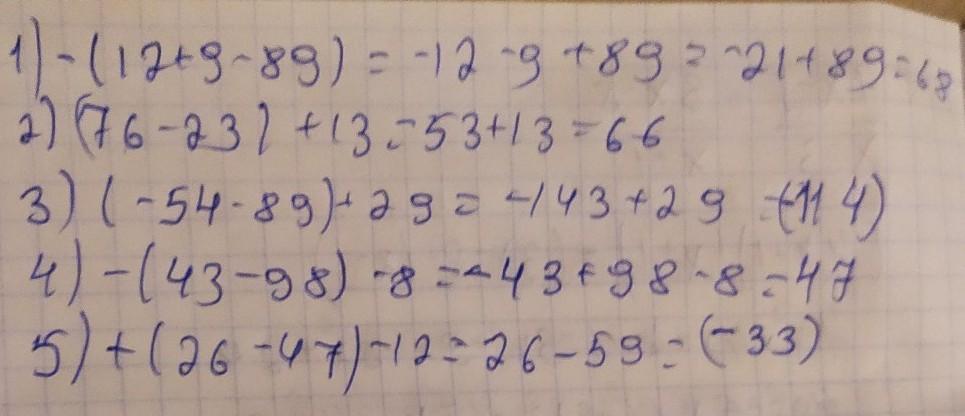 1) -(12+9-89) = -12-9+89 = -21+89 = 68
2) (76-23) +13 = 53+13 = 66
3) (-54-89)+29 = -143+29 = (-114)
4) -(43-98) -8 = -43+98-8 = 47
5) +(26-47)-12 = 26-59 = (-33)